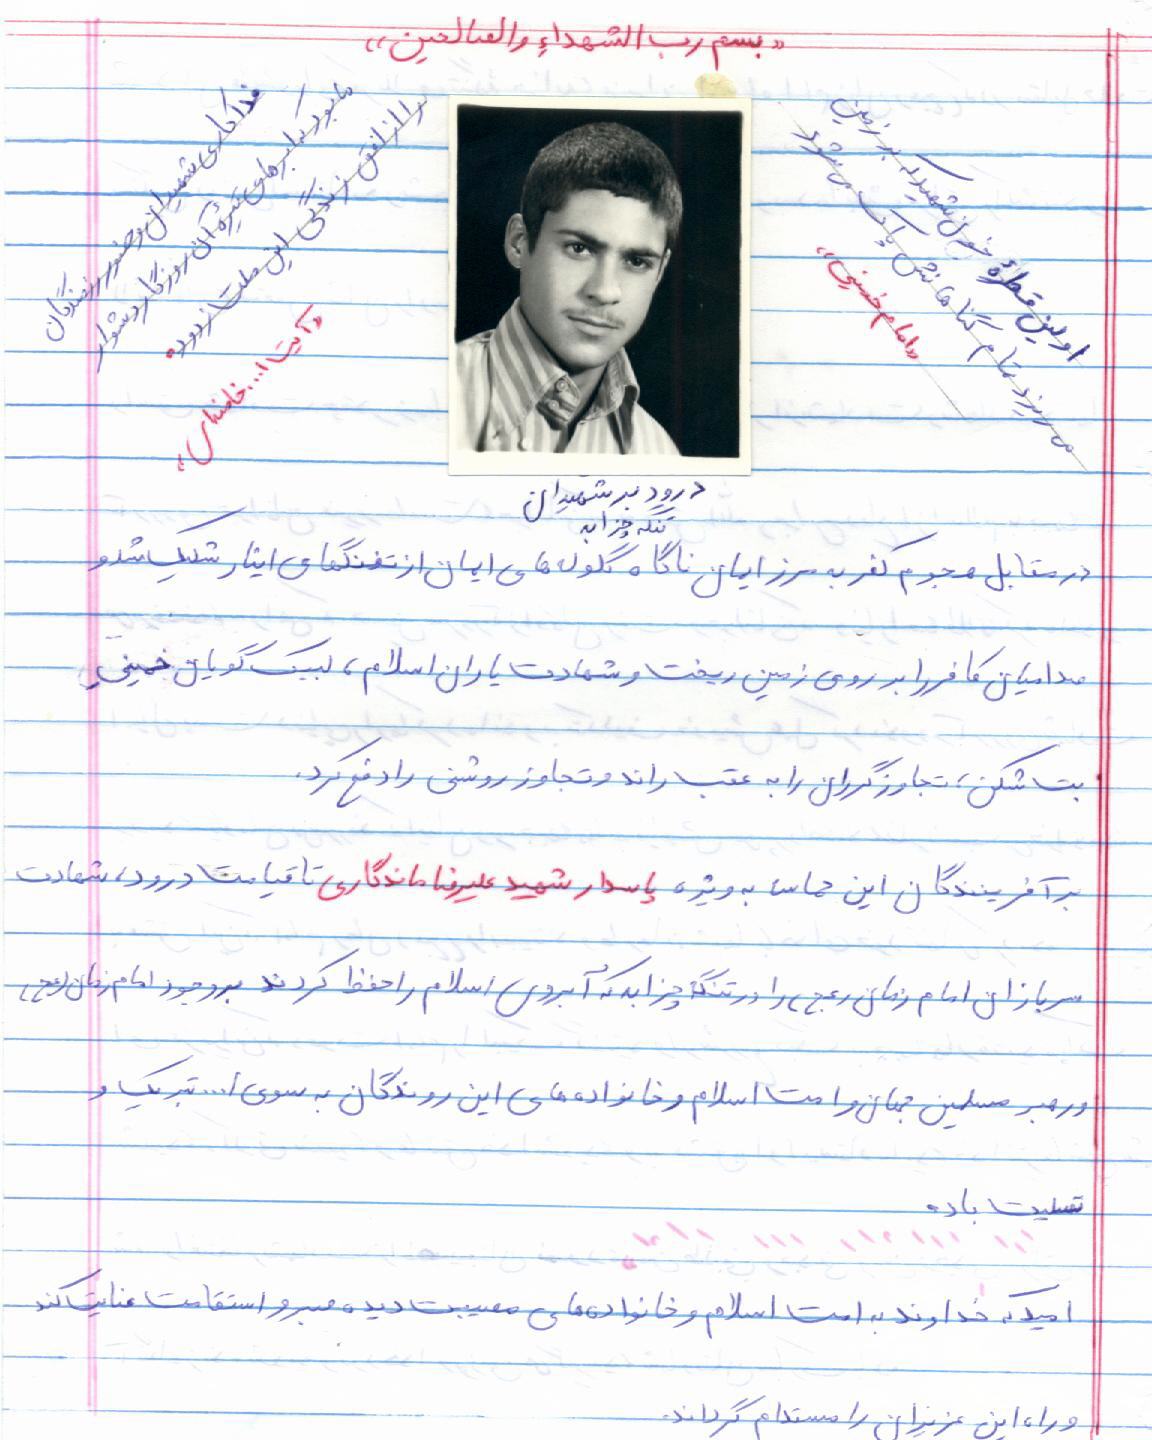 «بسم رب الشهداء والصالحین»
اولین قطرهٔ خون شهید که بر زمین
می‌ریزد تمام گناهانش پاک می‌شود
«امام خمینی»
فداکاری شهیدان و حضور رزمندگان
ما بود که ابرهای تیرهٔ آن روزگار دشوار
را از افق زندگی این ملت زدود.
«آیت ا... خامنه‌ای»
درود بر شهیدان
تنگه چزابه
در مقابل هجوم کفر به مرز ایمان ناگاه گلوله‌های ایمان از تفنگهای ایثار شلیک شد و
صدامیان کافر را بر روی زمین ریخت و شهادت یاران اسلام، لبیک گویان خمینی
بت شکن، تجاوزگران را به عقب راند و تجاوز روشنی را دفع کرد.
بر آفرینندگان این حماسه به ویژه پاسدار شهید علیرضا ماندگاری تا قیامت درود، شهادت
سربازان امام زمان (عج) را در تنگهٔ چزابه که آبروی اسلام را حفظ کردند بر وجود امام زمان (عج)
و رهبر مسلمین جهان و امت اسلام و خانواده‌های این روندگان به سوی ا... تبریک و
تسلیت باد.
امید که خداوند به امت اسلام و خانواده‌های مصیبت دیده صبر و استقامت عنایت کند
و راه این عزیزان را مستدام گرداند.